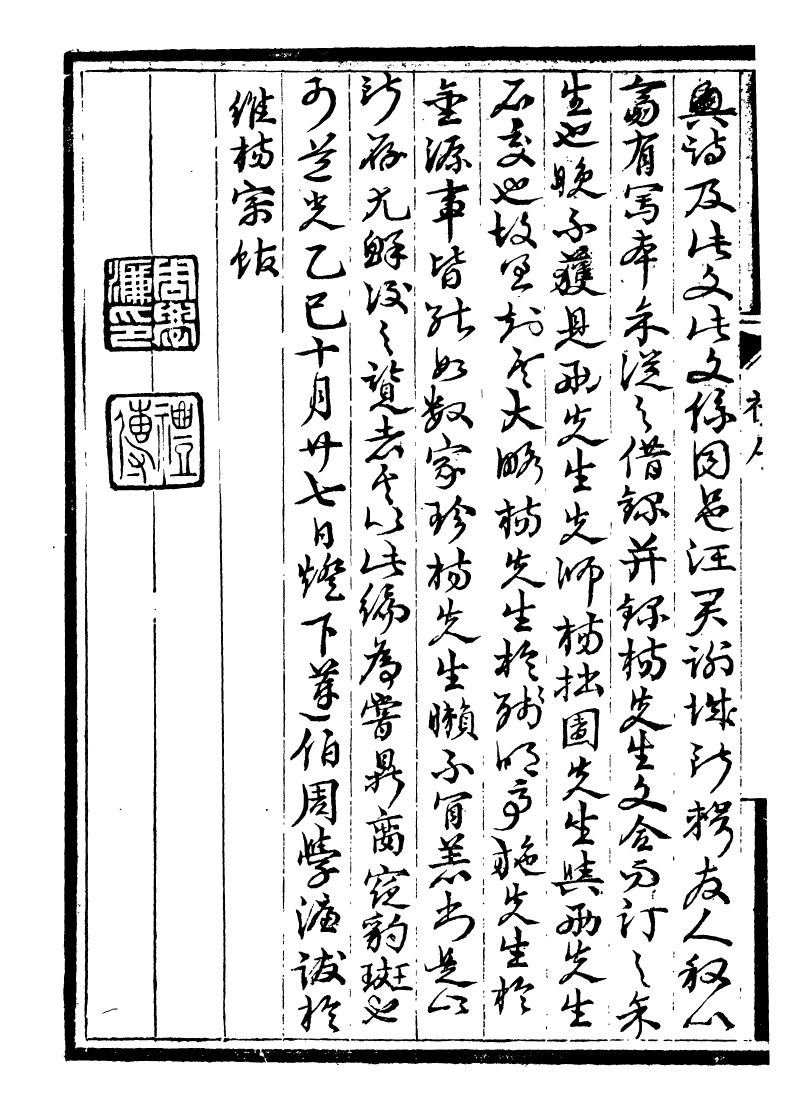 與詩及此文此文係同邑汪君謝城所輯友人
齋有寫本余從之借錄并錄楊先生文合而訂之余
生也晚不獲見兩先生先師楊拙園先生與兩先生
石交也故知其大略楊先生於殘明事施先生於
金源事皆能如數家珍楊先生嬾不肯著書是以
所存尤鮮後之覽者其以此編為嘗鼎臠窺豹斑也
可道光乙巳十月廿七日燈下蓮伯周學濂跋於
維楊寓館
周學濂印
禮傳